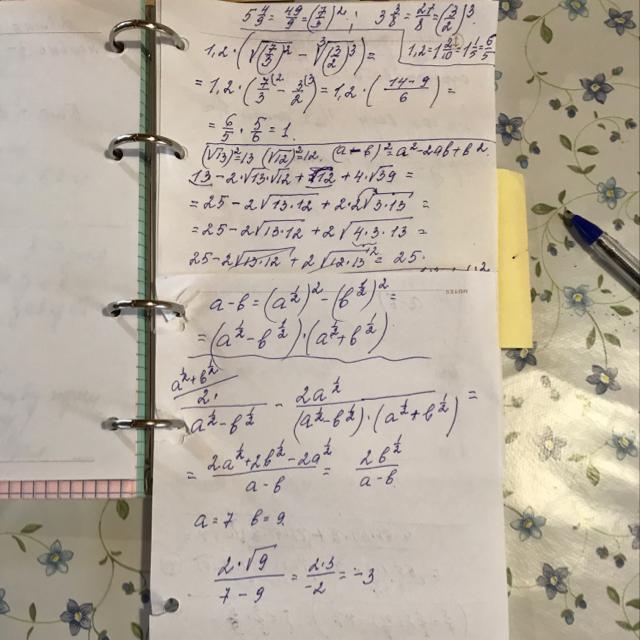 5 4/9 = 49/9 = (7/3)²; 3 3/8 = 27/8 = (3/2)³.
1,2 · (√(7/3)² - ³√(3/2)³) = 1,2 = 1 2/10 = 1 1/5 = 6/5
= 1,2 · (7/3 - 3/2) = 1,2 · (14-9/6) =
= 6/5 · 5/6 = 1.
(√13)² = 13 (√12)² = 12. (a-b)² = a² - 2ab + b².
13 - 2·√13·√12 + 12 + 4·√39 =
= 25 - 2√13·12 + 2·2√3·13 =
= 25 - 2√13·12 + 2√4·3·13 =
25 - 2√13·12 + 2√12·13 = 25.
a-b = (a^½)² - (b^½)² =
= (a^½ - b^½)·(a^½ + b^½)
a^½ + b^½
2· / a^½ - b^½ - 2a^½ / (a^½ - b^½)·(a^½ + b^½) =
= 2a^½ + 2b^½ - 2a^½ / a-b = 2b^½ / a-b
a=7 b=9.
2·√9 / 7-9 = 2·3 / -2 = -3